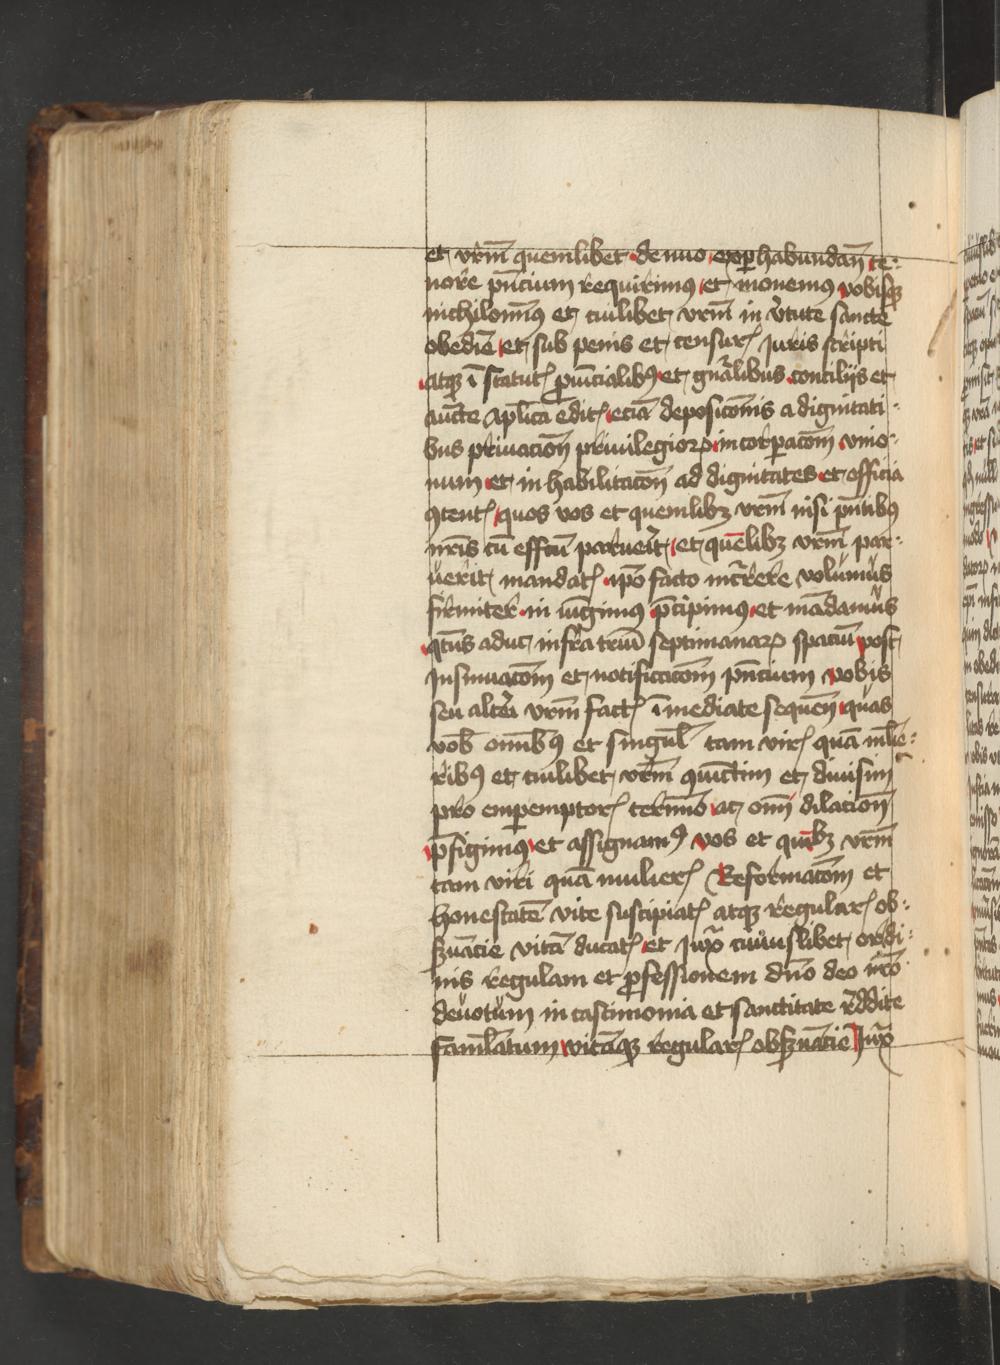 et vr̄m quemlibet denuo exsuꝑhabundan̄ te-
nore pn̄cium requirimus et monemus vobisqꝫ
nichilomi̅us et cuilibet vr̄m in v̓tute sancte
obedie̅ et sub penis et censur̹ Juris scripti
atqꝫ i̅ statut̹ ꝓui̅cialibꝰ et gn̅alibus concilijs et
auct̅e aplica̅ edit̹ ecia̅ deposico̅nis a dignitati-
bus priuacion̅ priuilegioꝝ incorꝑaco̅m vnio-
num et inhabilitaco̅n ad dignitates et officia
ꝯtent̹ quos vos et quemlibꝫ vr̄m nisi pn̅tibꝰ
nr̄is cu̅ effcu̅ parueri̅t et que̅libꝫ vr̄m par-
uerit mandat̹ ip̅o facto incr̅rere volumus
firmiter iniu̅gimus p̅cipimus et ma̅damus
qͣtnus aduc infra triu̅ septimanaꝝ spaciu̅ post
Insinuaco̅m et notificaco̅m pn̅cium vobis
seu alter̓i vr̄m fact̹ i̅mediate sequen̅ quas
vob̅ omibꝰ et singul̅ tam vir̹ qua̅ ml̅ie-
ribꝰ et cuilibet vr̄m ꝯui̅ctim et diuisim
pro emꝑemptor̹ termi̅o ac om̅i dilacion̅
p̅figimus et assignamꝰ vos et qui̅bꝫ vr̄m
tam viri qua̅ mulier̹ Reformaco̅m et
honestate̅ vite suscipiat̹ atqꝫ regular̹ ob-
ẜuacie vita̅ ducat̹ et Juxͣ cuiuslibet ordi-
nis regulam et ꝓfessionem dn̅o deo nr̅o
deuotum in castimonia et sanctitate r̅ddite
famlatum vita̅qꝫ regular̹ obẜuancie Juxͣ